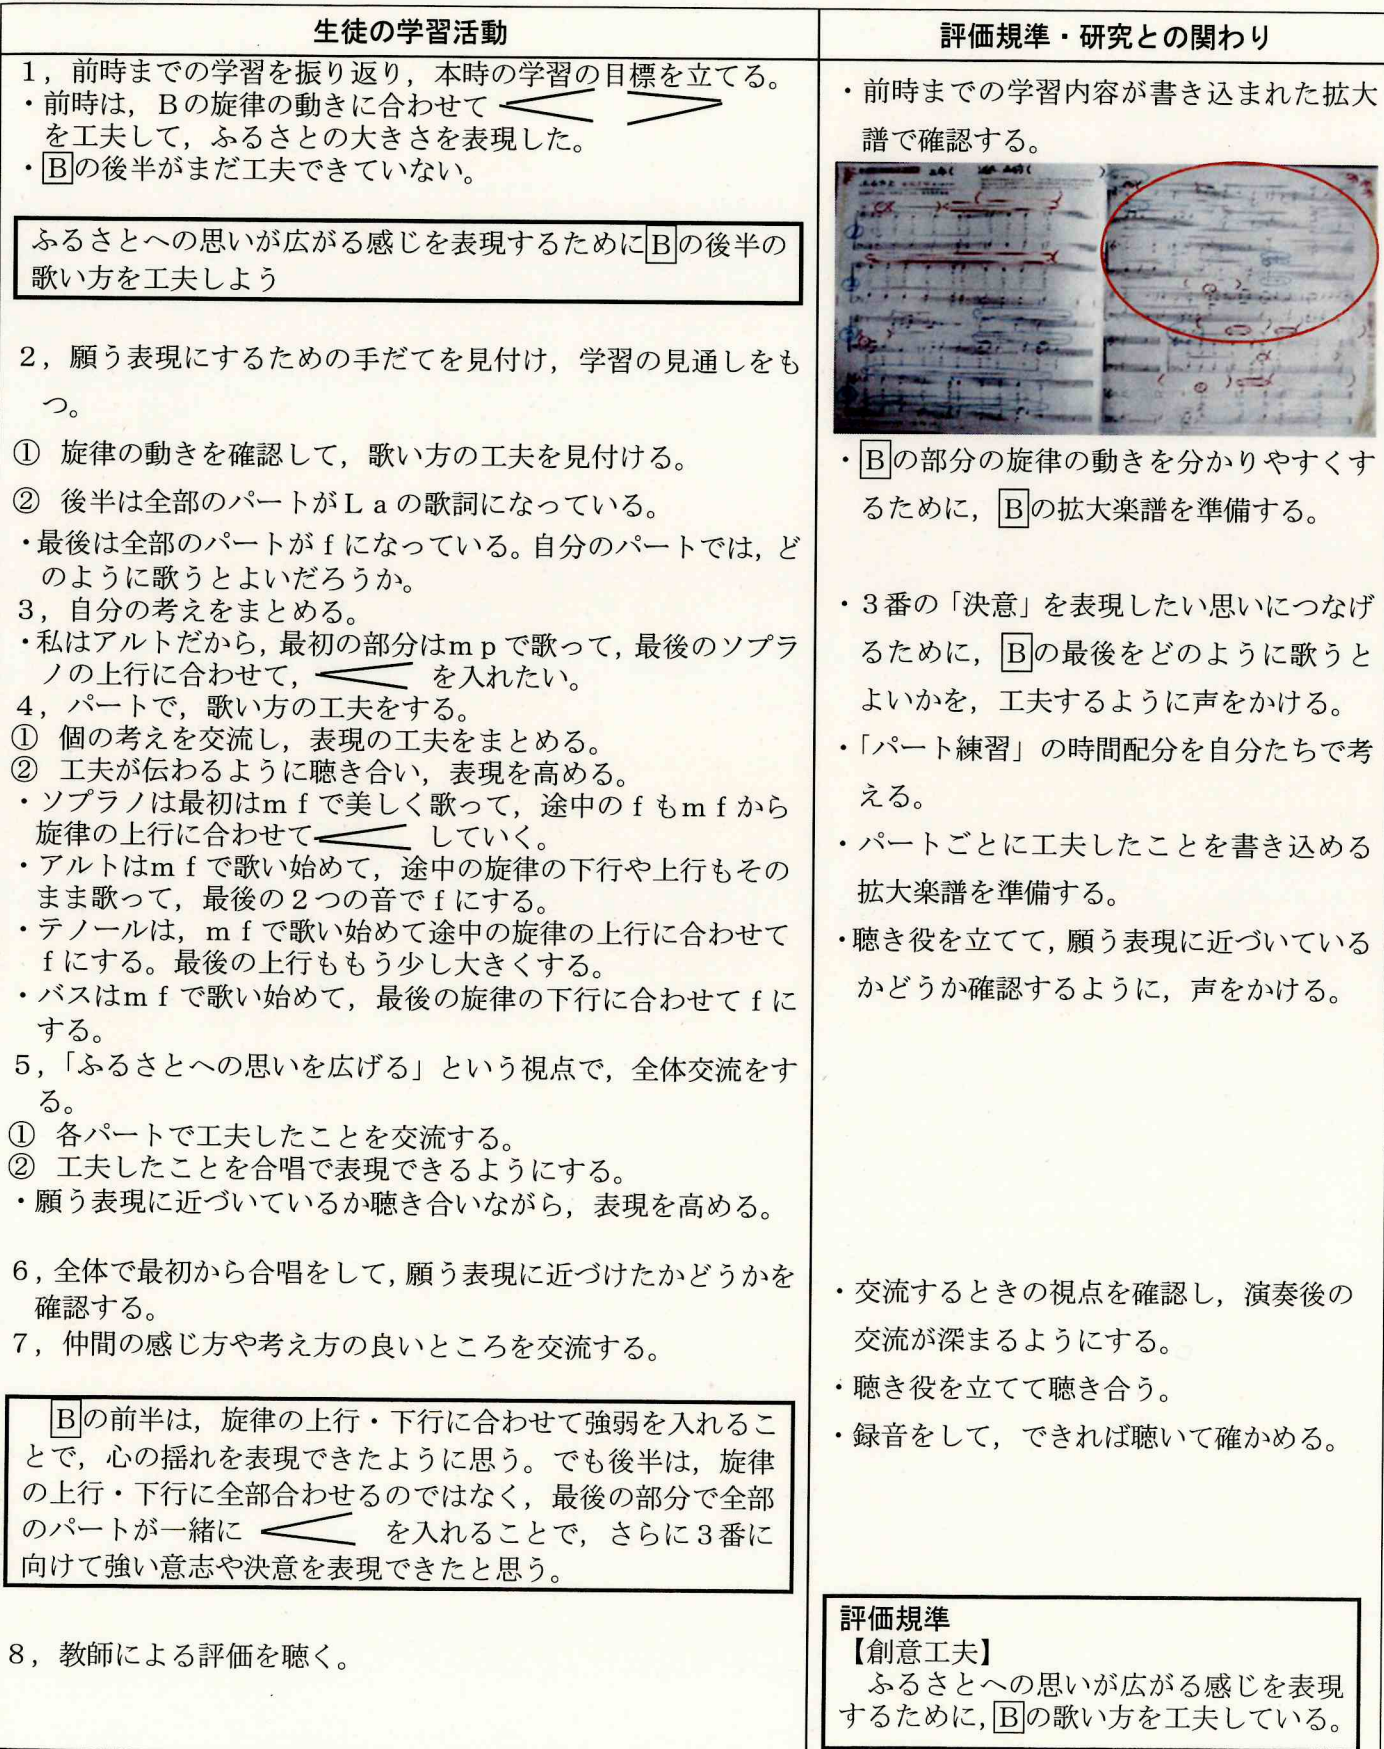 生徒の学習活動
1，前時までの学習を振り返り，本時の学習の目標を立てる。
・前時は，Bの旋律の動きに合わせて
を工夫して，ふるさとの大きさを表現した。
・Bの後半がまだ工夫できていない。
ふるさとへの思いが広がる感じを表現するためにBの後半の
歌い方を工夫しよう
2，願う表現にするための手だてを見付け，学習の見通しをも
つ。
① 旋律の動きを確認して，歌い方の工夫を見付ける。
② 後半は全部のパートがＬａの歌詞になっている。
・最後は全部のパートがｆになっている。自分のパートでは，ど
のように歌うとよいだろうか。
3，自分の考えをまとめる。
・私はアルトだから，最初の部分はｍｐで歌って，最後のソプラ
ノの上行に合わせて， を入れたい。
4，パートで，歌い方の工夫をする。
① 個の考えを交流し，表現の工夫をまとめる。
② 工夫が伝わるように聴き合い，表現を高める。
・ソプラノは最初はｍｆで美しく歌って，途中のｆもｍｆから
旋律の上行に合わせて していく。
・アルトはｍｆで歌い始めて，途中の旋律の下行や上行もその
まま歌って，最後の２つの音でｆにする。
・テノールは，ｍｆで歌い始めて途中の旋律の上行に合わせて
ｆにする。最後の上行ももう少し大きくする。
・バスはｍｆで歌い始めて，最後の旋律の下行に合わせてｆに
する。
5，「ふるさとへの思いを広げる」という視点で，全体交流をす
る。
① 各パートで工夫したことを交流する。
② 工夫したことを合唱で表現できるようにする。
・願う表現に近づいているか聴き合いながら，表現を高める。
6，全体で最初から合唱をして，願う表現に近づけたかどうかを
確認する。
7，仲間の感じ方や考え方の良いところを交流する。
Bの前半は，旋律の上行・下行に合わせて強弱を入れるこ
とで，心の揺れを表現できたように思う。でも後半は，旋律
の上行・下行に全部合わせるのではなく，最後の部分で全部
のパートが一緒に を入れることで，さらに３番に
向けて強い意志や決意を表現できたと思う。
8，教師による評価を聴く。
評価規準・研究との関わり
・前時までの学習内容が書き込まれた拡大
譜で確認する。
・Bの部分の旋律の動きを分かりやすくす
るために，Bの拡大楽譜を準備する。
・３番の「決意」を表現したい思いにつなげ
るために，Bの最後をどのように歌うと
よいかを，工夫するように声をかける。
・「パート練習」の時間配分を自分たちで考
える。
・パートごとに工夫したことを書き込める
拡大楽譜を準備する。
・聴き役を立てて，願う表現に近づいている
かどうか確認するように，声をかける。
・交流するときの視点を確認し，演奏後の
交流が深まるようにする。
・聴き役を立てて聴き合う。
・録音をして，できれば聴いて確かめる。
評価規準
【創意工夫】
ふるさとへの思いが広がる感じを表現
するために，Bの歌い方を工夫している。